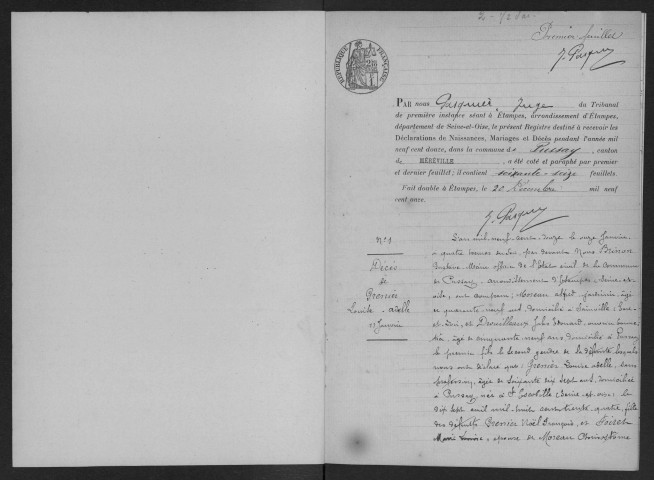 Premier feuillet
J. Pasquier
RÉPUBLIQUE FRANÇAISE
PAR nous Pasquier, Juge du Tribunal
de première instance séant à Étampes, arrondissement d'Étampes,
département de Seine-et-Oise, le présent Registre destiné à recevoir les
Déclarations de Naissances, Mariages et Décès pendant l'année mil
neuf cent douze, dans la commune de Pussay, canton
de MÉRÉVILLE, a été coté et paraphé par premier
et dernier feuillet; il contient soixante-seize feuillets.
Fait double à Étampes, le 20 Décembre mil neuf
cent onze.
J. Pasquier
N° 1
Décès
de
Grenier
Louise-adelle
11 Janvier
L'an mil neuf cent douze le onze Janvier
à quatre heures du soir, par devant Nous Brinon
Gustave Maire officier de l'Etat civil de la Commune
de Pussay, arrondissement d'Etampes, Seine-et-
oise, ont comparu; Moreau alfred, âgé
de quarante neuf ans domicilié à Sainville, Eure-
et-Loir, et Drouilleaux Jules Edouard
âgé de cinquante neuf ans domicilié à Pussay,
le premier fils le second gendre de la défunte lesquels
nous ont déclaré que, Grenier Louise adelle, sans
profession, âgée de soixante dix sept ans, domiciliée
à Pussay, née à St Escobille (Seine-et-oise) le
dix sept avril mil huit cent trente quatre, fille
des défunts Grenier Noël François, et
Marie Louise, épouse de Moreau